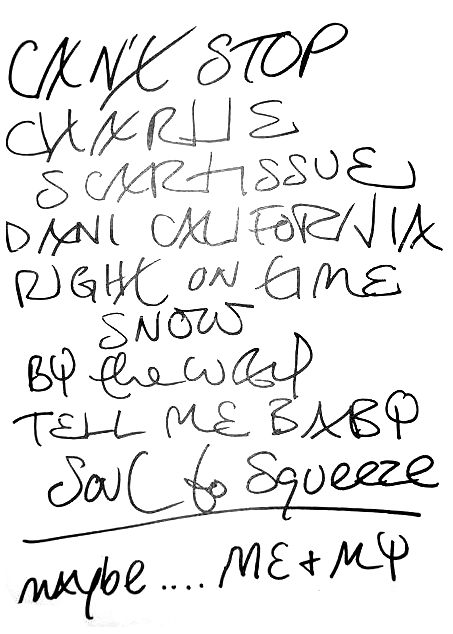 CAN'T STOP
CHARLIE
SCARTISSUE
DANI CALIFORNIA
RIGHT ON TIME
SNOW
BY the WAY
TELL ME BABY
Soul to Squeeze
maybe .... ME + MY